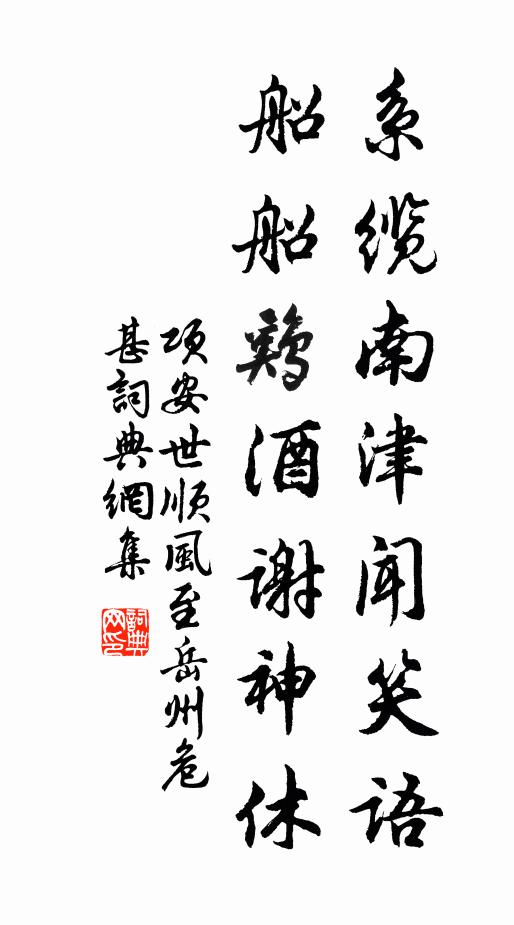 系缆南津闻笑语
船船鷄酒谢神休
项安世顺風至岳州危
甚詞典網集
詞典網印